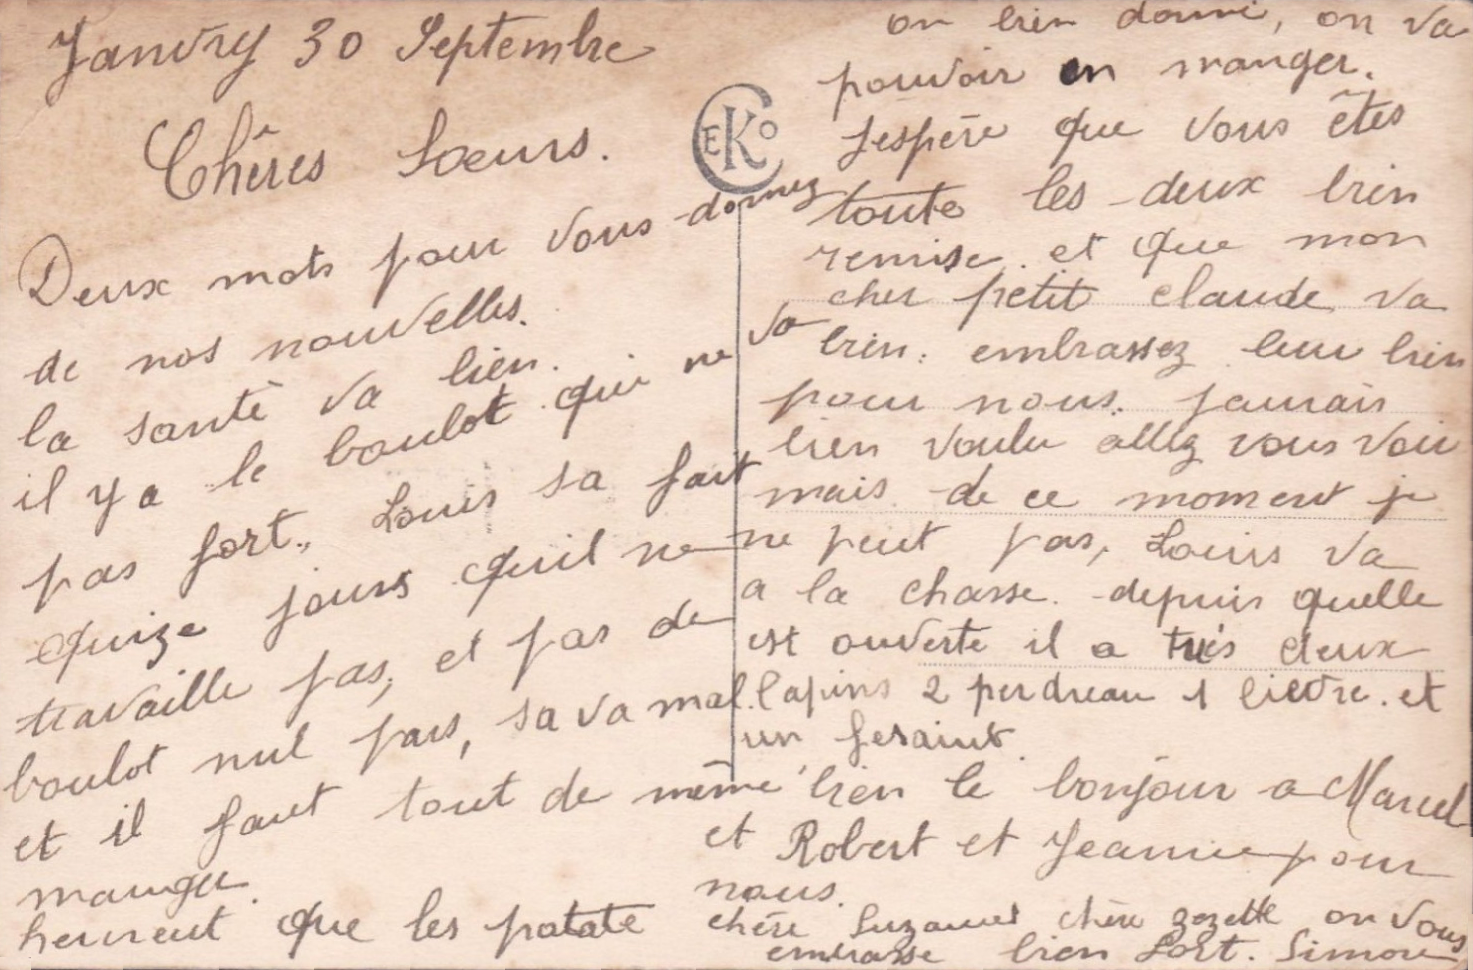 Janvry 30 Septembre
Chères Sœurs.
Deux mots pour vous donnez
de nos nouvelles.
la santé va bien.
il y a le boulot qui ne va
pas fort., Louis sa fait
quize jours quil ne
travaille pas, et pas de
boulot nul pars, sa va mal.
et il faut tout de même
manger.
heureut que les patate
on bien donné, on va
pouvoir en manger.
Jespère que vous êtes
toute les deux bien
remise. et que mon
cher petit claude va
bien. embrassez leur bien
pour nous. Jaurais
bien voulu allez vous voir
mais de ce moment je
ne peut pas, Louis va
a la chasse. depuis quelle
est ouverte il a tués deux
lapins 2 perdreau 1 lievre. et
un fesaint
bien le bonjour a Marcel
et Robert et Jeanne pour
nous.
chère Suzanne chère zezette on vous
embrasse bien fort. Simone
CEKO